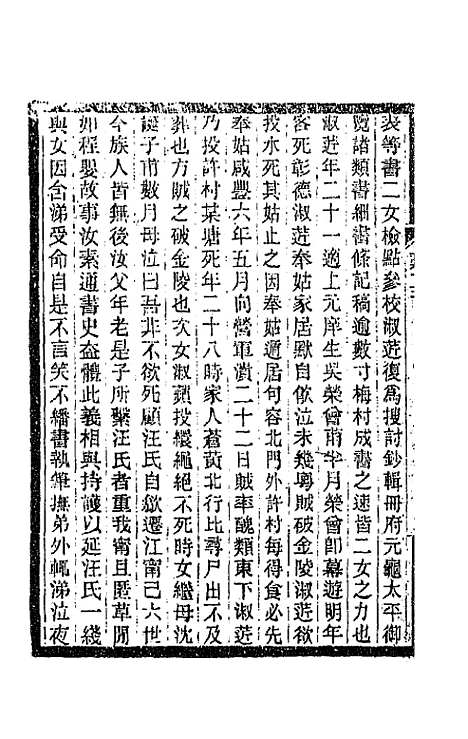 表等書二女檢點參校淑蓮復爲搜討鈔輯冊府元龜太平御
覽諸類書細書條記稿逾數寸梅村成書之速皆二女之力也
淑蓮年二十一適上元庠生吳榮曾甫半月榮曾卽幕遊明年
客死彰德淑蓮奉姑家居默自傷泣未幾粵賊破金陵淑蓮欲
投水死其姑止之因奉姑遁居句容北門外許村每得食必先
奉姑咸豐六年五月向營軍潰二十二日賊率醜類東下淑蓮
乃投許村某塘死年二十八時家人蒼黃北行比尋尸出不及
葬也方賊之破金陵也次女淑蘋投繯繩絕不死時女繼母沈
誕子甫數月母泣曰吾非不欲死顧汪氏自歙遷江甯已六世
今族人皆無後汝父年老是子所繫汪氏者重我甯且匿草閒
如程嬰故事汝素通書史盍體此義相與持護以延汪氏一綫
與女因含涕受命自是不言笑不繙書執筆撫弟外輒涕泣夜